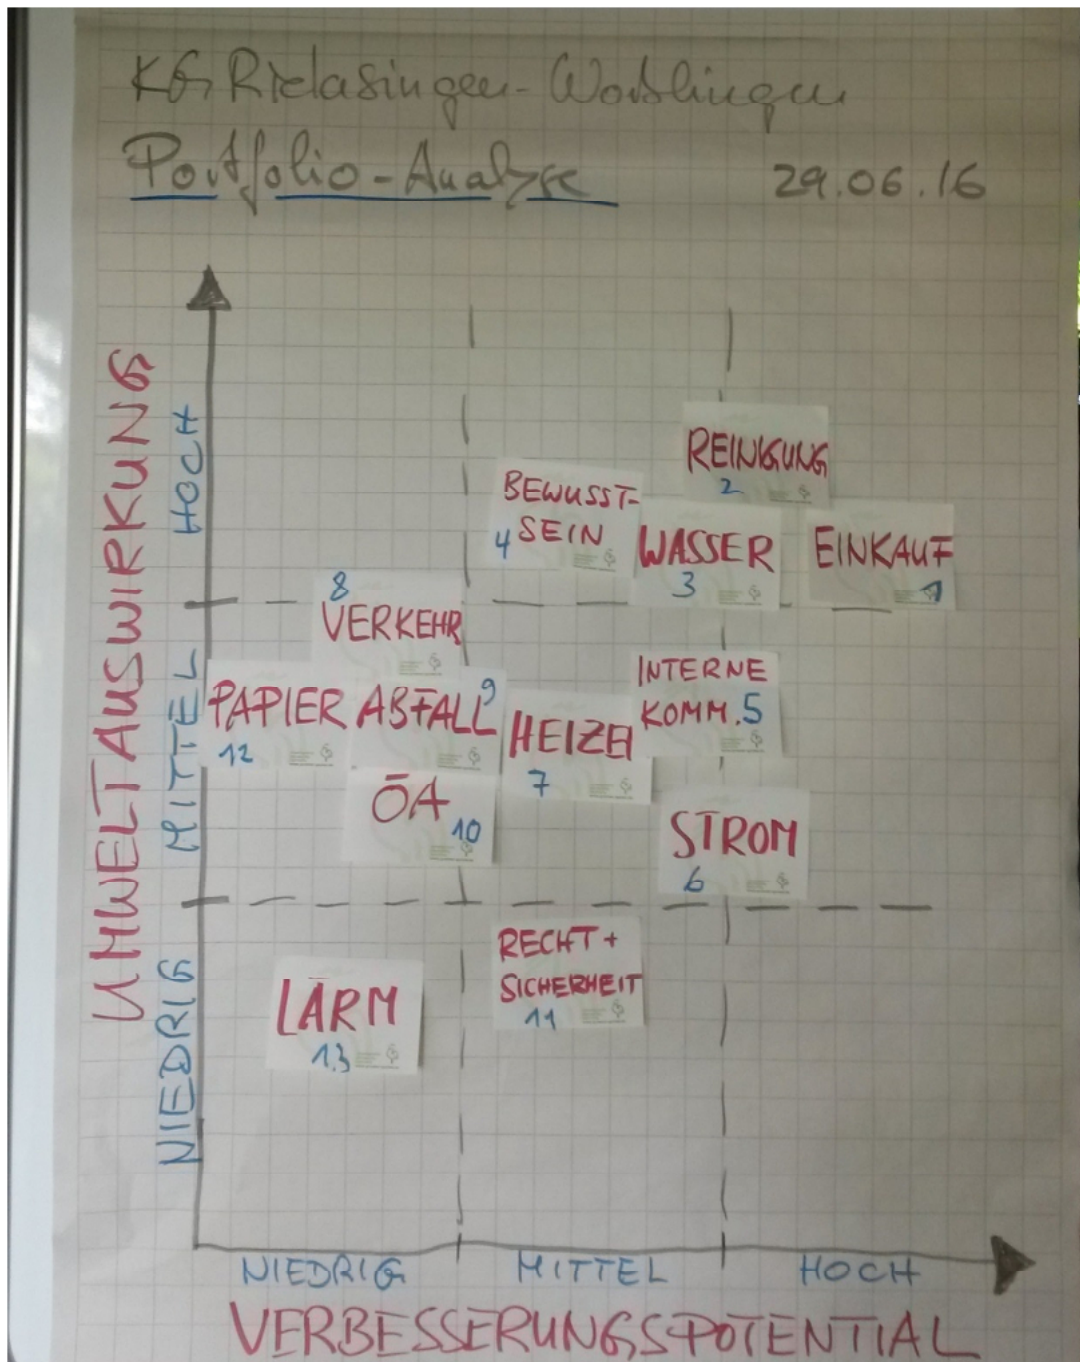 KG Rielasingen-Worblingen
Portfolio-Analyse 29.06.16
UMWELTAUSWIRKUNG
HOCH
MITTEL
NIEDRIG
REINIGUNG
2
BEWUSST-
SEIN
4
WASSER
3
EINKAUF
1
8
VERKEHR
PAPIER
12
ABFALL
9
HEIZEN
7
INTERNE
KOMM. 5
ÖA
10
STROM
6
RECHT +
SICHERHEIT
11
LÄRM
13
NIEDRIG MITTEL HOCH
VERBESSERUNGSPOTENTIAL